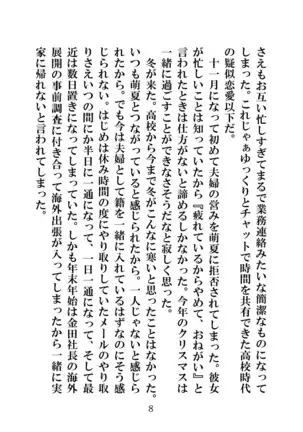 さえもお互い忙しすぎてまるで業務連絡みたいな簡潔なものになって
しまった。これじゃぁゆっくりとチャットで時間を共有できた高校時代
の疑似恋愛以下だ。
十一月になって初めて夫婦の営みを萌夏に拒否されてしまった。彼女
が忙しいことは知っていたから『疲れているからやめて、おねがい』と
言われたときは仕方がないと諦めるしかなかった。今年のクリスマスは
一緒に過ごすことができなさそうだなと寂しく思った。
冬が来た。高校から今まで冬がこんなに寒いと思ったことはなかった。
いつも萌夏とつながっていると感じられたから。一人じゃないと感じら
れたから。でも今は夫婦として籍を一緒に入れているはずなのにそう感
じられない。はじめは休み時間の度にやり取りしていたメールのやり取
りさえいつの間にか半日に一通になって、一日一通になって、そして最
近は数日置きになってしまっていた。しかも年末年始は金田社長の海外
展開の事前調査に付き合って海外出張が入ってしまったから一緒に実
家に帰れないと言われてしまった。
8